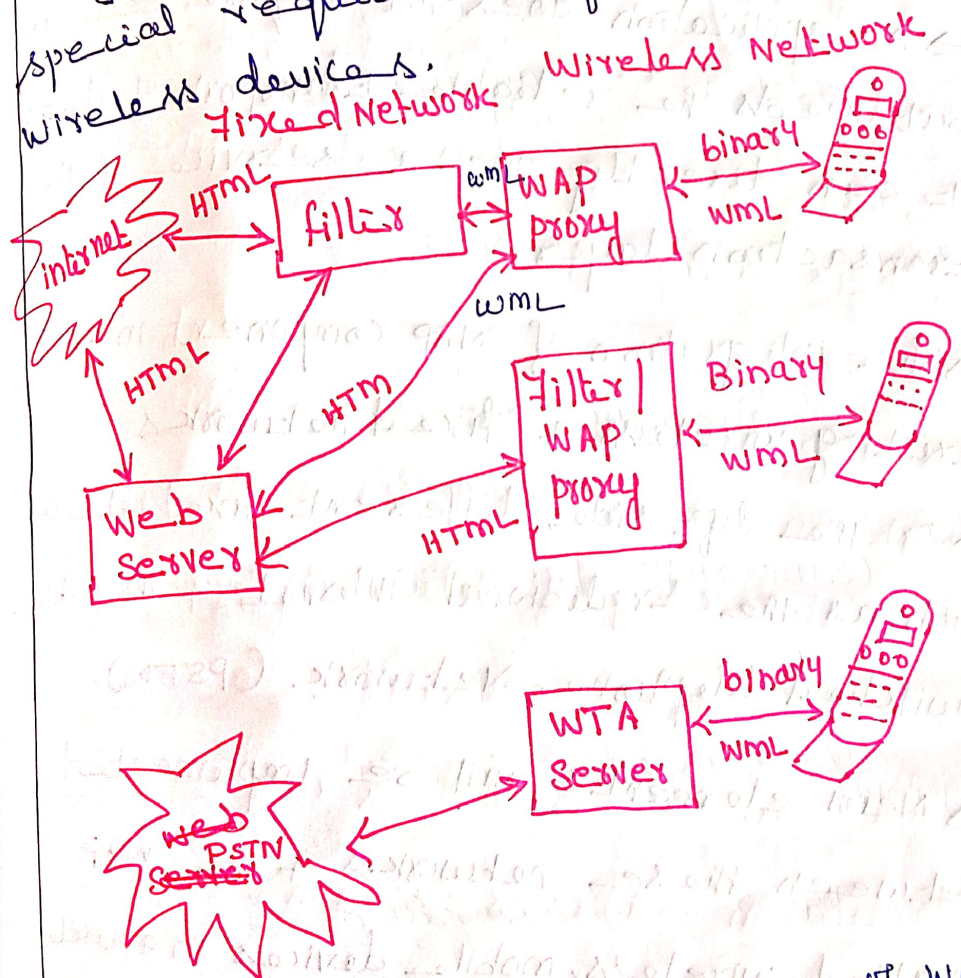 special
wireless devices.
Wireless Network
Fixed Network
internet
HTML
filter
WML
WAP
proxy
binary
WML
WML
HTML
HTM
Filter/
WAP
proxy
Binary
WML
HTML
Web
Server
WTA
Server
binary
WML
PSTN